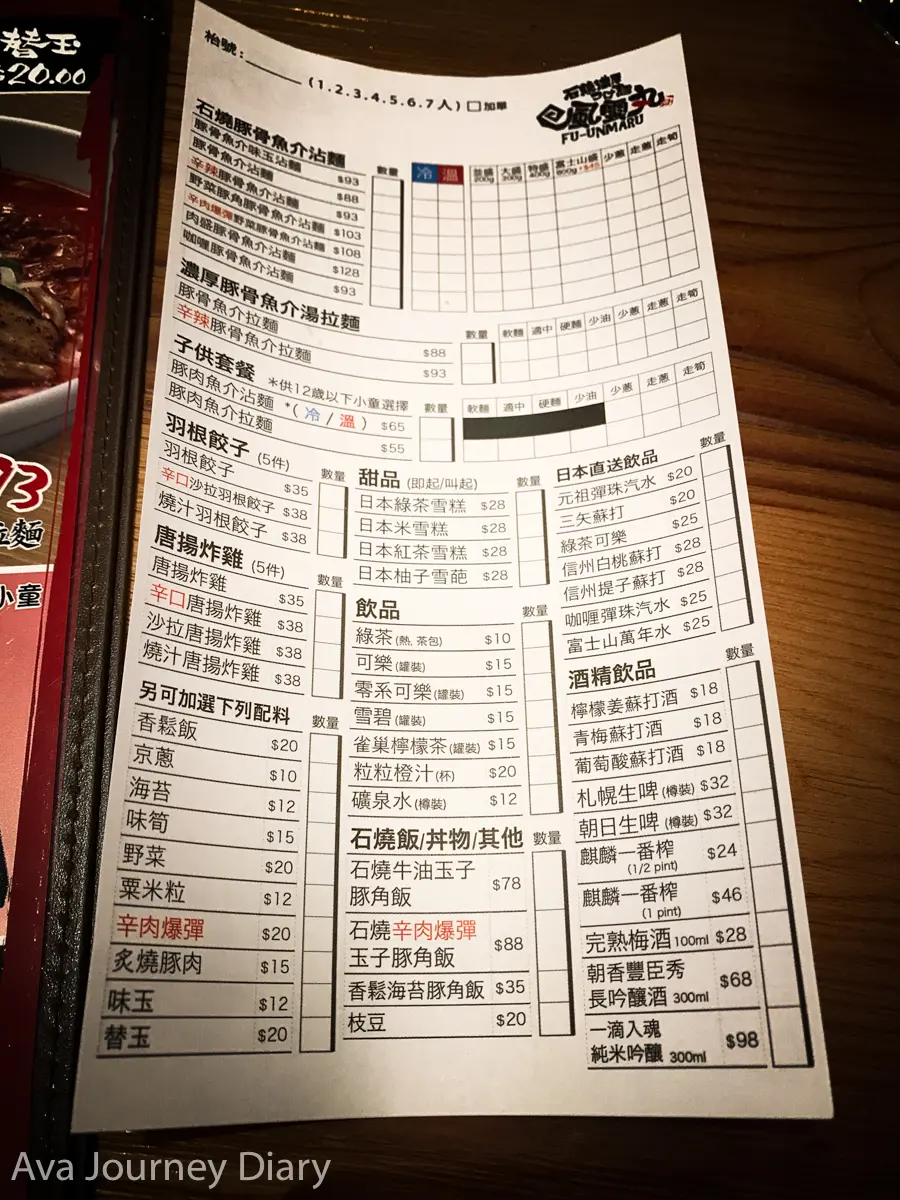 替玉
$20.00
枱號：
(1.2.3.4.5.6.7人) 加單
石燒濃厚
つけ麺
風雲丸
FU-UNMARU
石燒豚骨魚介沾麵 數量 冷 溫 並盛 200g 大盛 300g 特盛 400g 富士山盛 800g +$45 少蔥 走蔥 走筍
豚骨魚介味玉沾麵 $93
豚骨魚介沾麵 $88
辛辣豚骨魚介沾麵 $93
野菜豚角豚骨魚介沾麵 $103
辛肉爆彈野菜豚骨魚介沾麵 $108
肉盛豚骨魚介沾麵 $128
咖喱豚骨魚介沾麵 $93
濃厚豚骨魚介湯拉麵 數量 軟麵 適中 硬麵 少油 少蔥 走蔥 走筍
豚骨魚介拉麵 $88
辛辣豚骨魚介拉麵 $93
子供套餐 *供12歲以下小童選擇 數量 軟麵 適中 硬麵 少油 少蔥 走蔥 走筍
豚肉魚介沾麵 *( 冷 / 溫 ) $65
豚肉魚介拉麵 $55
羽根餃子 (5件) 數量
羽根餃子 $35
辛口沙拉羽根餃子 $38
燒汁羽根餃子 $38
唐揚炸雞 (5件) 數量
唐揚炸雞 $35
辛口唐揚炸雞 $38
沙拉唐揚炸雞 $38
燒汁唐揚炸雞 $38
另可加選下列配料 數量
香鬆飯 $20
京蔥 $10
海苔 $12
味筍 $15
野菜 $20
粟米粒 $12
辛肉爆彈 $20
炙燒豚肉 $15
味玉 $12
替玉 $20
甜品 (即起/叫起) 數量
日本綠茶雪糕 $28
日本米雪糕 $28
日本紅茶雪糕 $28
日本柚子雪葩 $28
飲品 數量
綠茶(熱, 茶包) $10
可樂(罐裝) $15
零系可樂(罐裝) $15
雪碧(罐裝) $15
雀巢檸檬茶(罐裝) $15
粒粒橙汁(杯) $20
礦泉水(樽裝) $12
石燒飯/丼物/其他 數量
石燒牛油玉子
豚角飯 $78
石燒辛肉爆彈
玉子豚角飯 $88
香鬆海苔豚角飯 $35
枝豆 $20
日本直送飲品 數量
元祖彈珠汽水 $20
三矢蘇打 $20
綠茶可樂 $25
信州白桃蘇打 $28
信州提子蘇打 $28
咖喱彈珠汽水 $25
富士山萬年水 $25
酒精飲品 數量
檸檬姜蘇打酒 $18
青梅蘇打酒 $18
葡萄酸蘇打酒 $18
札幌生啤 (樽裝) $32
朝日生啤 (樽裝) $32
麒麟一番榨
(1/2 pint) $24
麒麟一番榨
(1 pint) $46
完熟梅酒 100ml $28
朝香豐臣秀
長吟釀酒 300ml $68
一滴入魂
純米吟釀 300ml $98
拉麵
小童
Ava Journey Diary